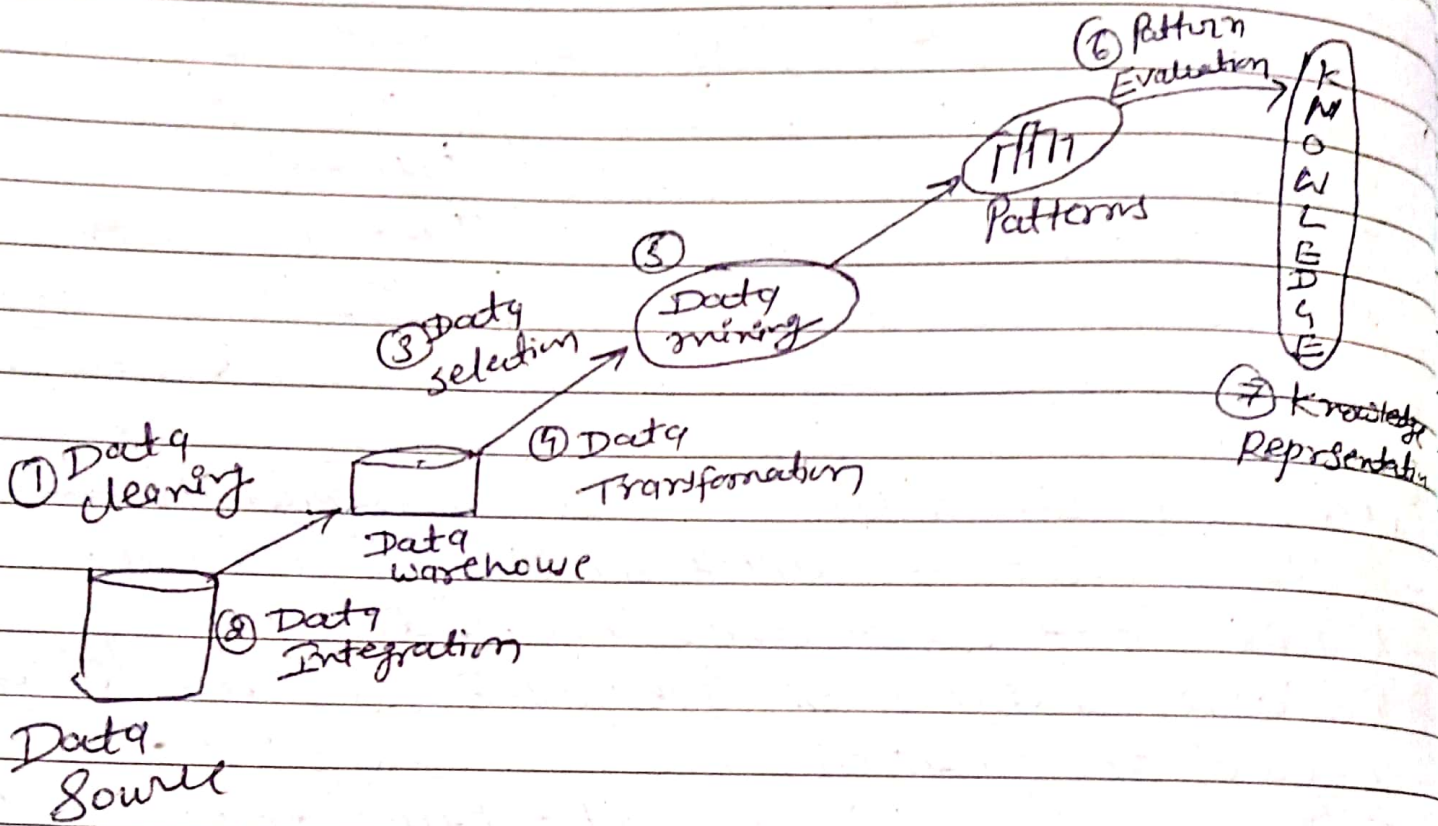 ⑥ Pattern
Evaluation
K
N
O
W
L
E
D
G
E
Patterns
⑤
Data
mining
③ Data
selection
⑦ Knowledge
Reprsentatin
④ Data
Transformation
① Data
cleaning
Data
warehouse
② Data
Integration
Data
Source